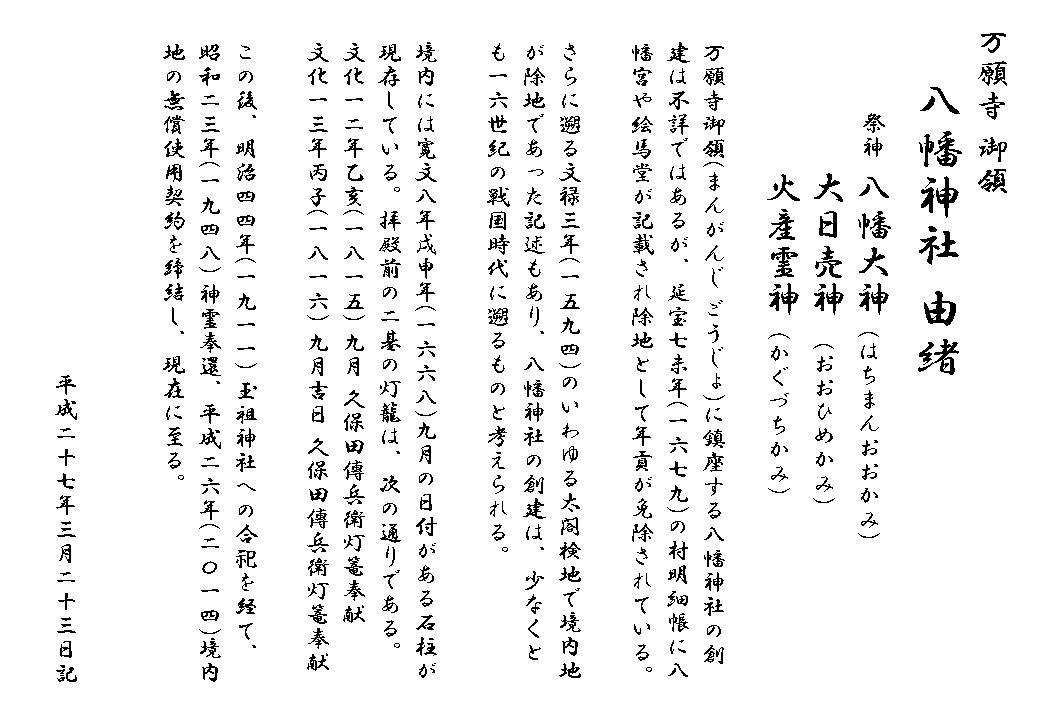 万願寺 御領
八幡神社 由緒
祭神 八幡大神(はちまんおおかみ)
大日売神(おおひめかみ)
火産霊神(かぐづちかみ)
万願寺御領(まんがんじ ごうじょ)に鎮座する八幡神社の創
建は不詳ではあるが、延宝七未年(一六七九)の村明細帳に八
幡宮や絵馬堂が記載され除地として年貢が免除されている。
さらに遡る文禄三年(一五九四)のいわゆる太閤検地で境内地
が除地であった記述もあり、八幡神社の創建は、少なくと
も一六世紀の戦国時代に遡るものと考えられる。
境内には寛文八年戌申年(一六六八)九月の日付がある石柱が
現存している。拝殿前の二基の灯籠は、次の通りである。
文化一二年乙亥(一八一五)九月 久保田傳兵衛灯篭奉献
文化一三年丙子(一八一六)九月吉日 久保田傳兵衛灯篭奉献
この後、明治四四年(一九一一)玉祖神社への合祀を経て、
昭和二三年(一九四八)神霊奉還、平成二六年(二〇一四)境内
地の無償使用契約を締結し、現在に至る。
平成二十七年三月二十三日記